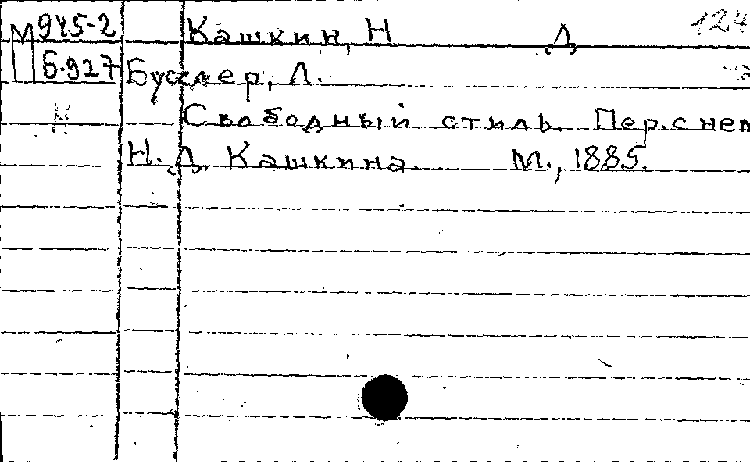 М 945-2 Кашкин, Н Д 124
Б-927 Бусслер, Л.
Н Свободный стиль. Пер. с нем
Н. Д. Кашкина. М., 1885.